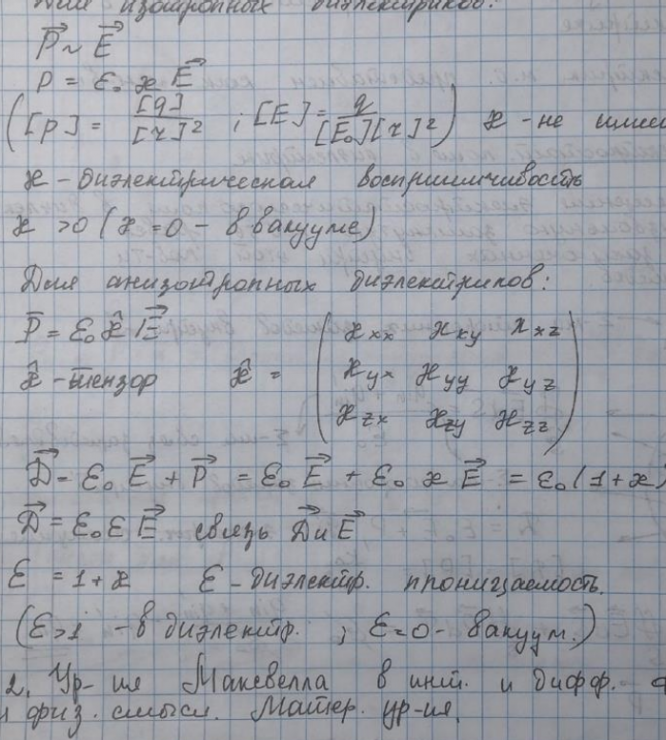 Для изотропных диэлектриков:
P⃗ ~ E⃗
P = ε₀ ϰ E⃗
([P] = [q]/[r]² ; [E] = q/[E₀][r]²) ϰ - не
ϰ - диэлектрическая восприимчивость
ϰ > 0 (ϰ = 0 - в вакууме)
Для анизотропных диэлектриков:
P⃗ = ε₀ ϰ̂ E⃗
ϰ̂ - тензор ϰ̂ =
ϰxx ϰxy ϰxz
ϰyx ϰyy ϰyz
ϰzx ϰzy ϰzz
D⃗ = ε₀ E⃗ + P⃗ = ε₀ E⃗ + ε₀ ϰ E⃗ = ε₀ (1+ϰ)
D⃗ = ε₀ ε E⃗ связь D⃗ и E⃗
ε = 1 + ϰ ε - диэлектр. проницаемость.
(ε > 1 - в диэлектр. ; ε = 0 - вакуум.)
2. Ур-ия Максвелла в инт. и дифф.
и физ. смысл. Матер. ур-ия.